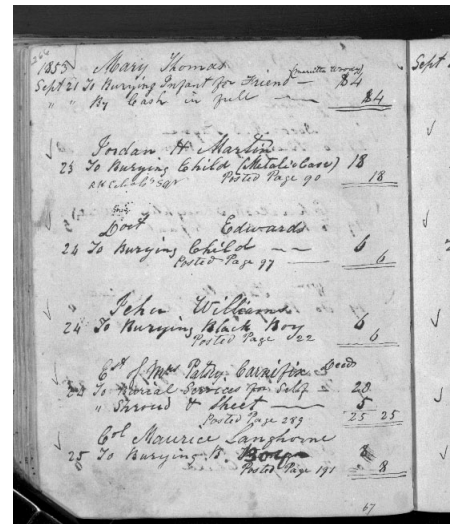 1853 Mary Thomas
Sept 21 To Burying Infant for Friend — $4
" " By Cash in full — $4
Jordan H Martin
23 To Burying Child (Metalic Case) 18
Posted Page 90 18
Doct Edwards
24 To Burying Child — 6
Posted Page 97 6
John Williams
24 To Burying Black Boy 6
Posted Page 122 6
Est of Mrs Patsy Carnifix Decd
24 To Burial Services for Self — 20
" Shroud & Sheet — 5
Posted Page 289 25 25
Col Maurice Langhorne
25 To Burying B. 8
Posted Page 191 8
67
Sept